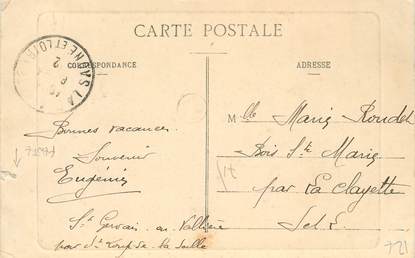 CARTE POSTALE
CORRESPONDANCE
ADRESSE
Bonnes vacances.
Souvenir
Eugénie
St Gervais en Vallière
par St Loup de la Salle
Mlle Marie
Bois Ste Marie
par La Clayette
S et L
721